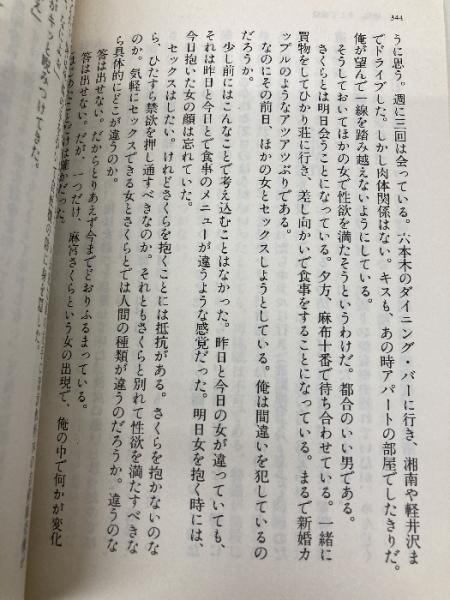 344
うに思う。週に三回は会っている。六本木のダイニング・バーに行き、湘南や軽井沢ま
でドライブした。しかし肉体関係はない。キスも、あの時アパートの部屋でしたきりだ。
俺が望んで一線を踏み越えないようにしている。
そうしておいてほかの女で性欲を満たそうというわけだ。都合のいい男である。
さくらとは明日会うことになっている。夕方、麻布十番で待ち合わせている。一緒に
買物をしてひかり荘に行き、差し向かいで食事をすることになっている。まるで新婚カ
ップルのようなアツアツぶりである。
なのにその前日、ほかの女とセックスしようとしている。俺は間違いを犯しているの
だろうか。
少し前にはこんなことで考え込むことはなかった。昨日と今日の女が違っていても、
それは昨日と今日とで食事のメニューが違うような感覚だった。明日女を抱く時には、
今日抱いた女の顔は忘れていた。
セックスはしたい。けれどさくらを抱くことには抵抗がある。さくらを抱かないのな
ら、ひたすら禁欲を押し通すべきなのか。それともさくらと別れて性欲を満たすべきな
のか。気軽にセックスできる女とさくらとでは人間の種類が違うのだろうか。違うのな
ら具体的にどこが違うのか。
答は出せない。だからとりあえず今までどおりふるまっている。
答は出せない。だが、一つだけ、麻宮さくらという女の出現で、俺の中で何かが変化
だけは確かだった。
がキッと睨みつけてきた。